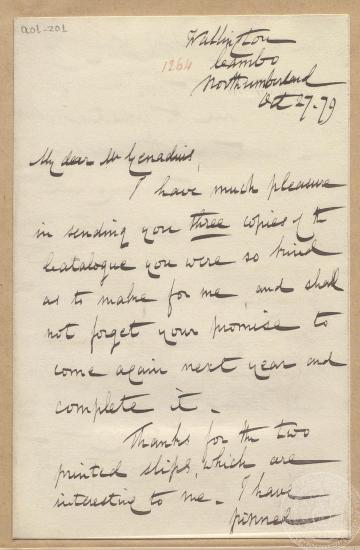 a01-201
Wallington
Cambo
1264
Northumberland
Oct 27-79
My dear Mr Gennadius,
I have much pleasure
in sending you three copies of the
Catalogue you were so kind
as to make for me, and shall
not forget your promise to
come again next year and
complete it.
Thanks for the two
printed slips, which are
interesting to me. I have
pinned